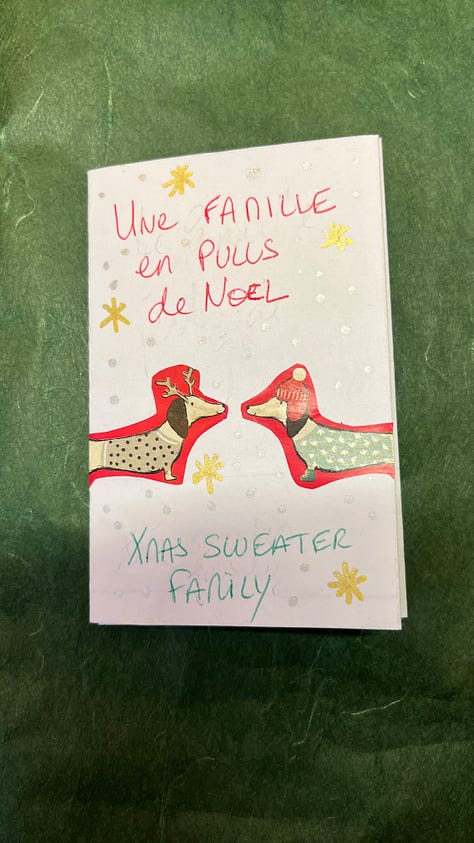 Une FAMILLE
en PULLS
de NOEL
XMAS SWEATER
FAMILY